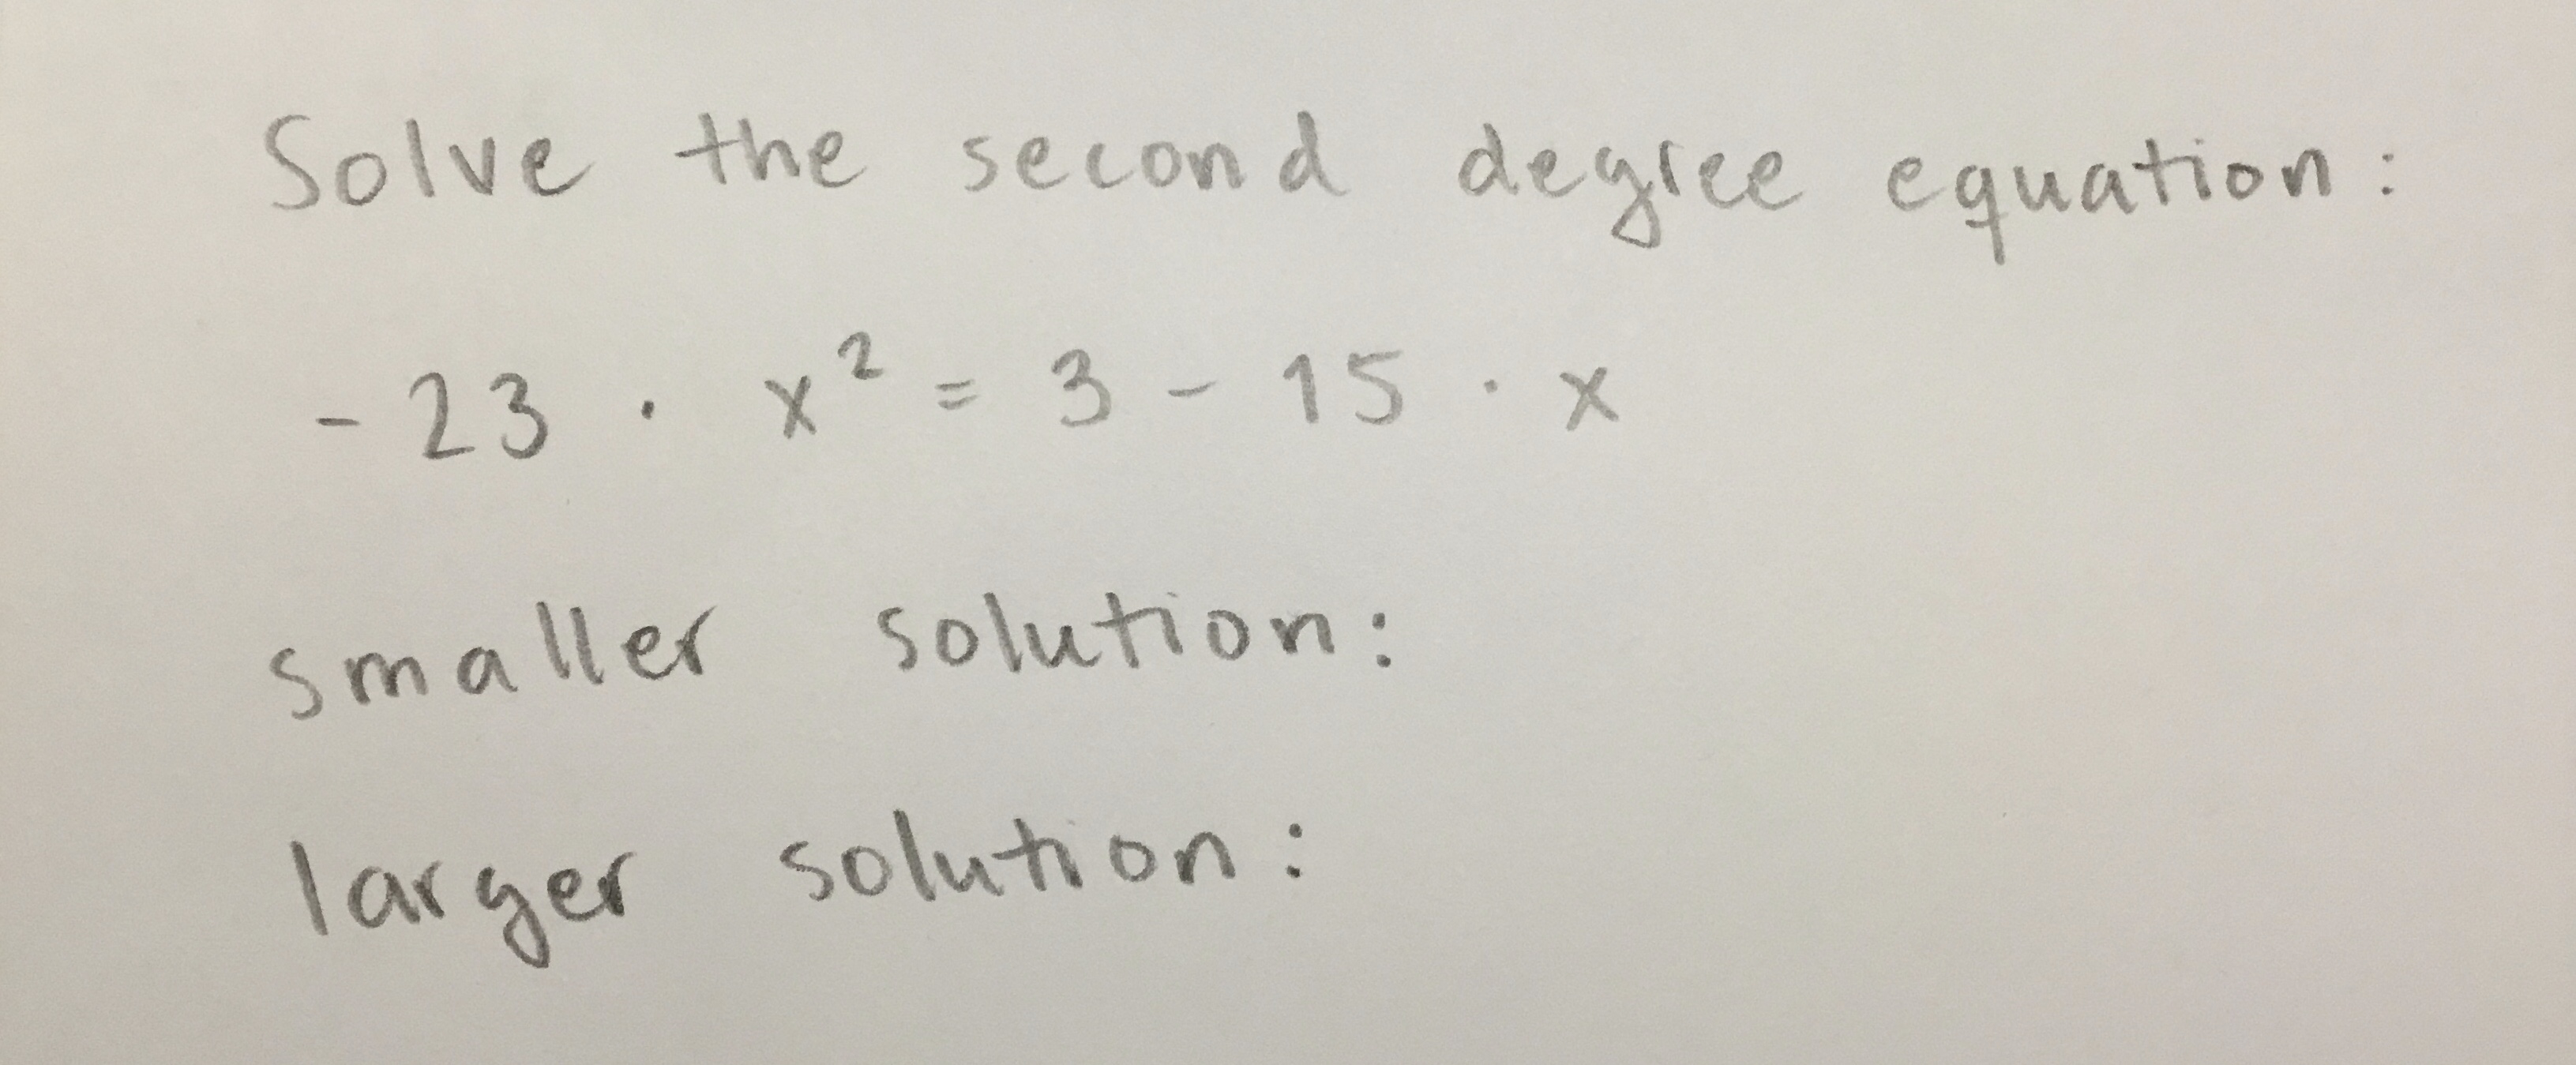 Solve the second degree equation:
-23 · x² = 3 - 15 · x
smaller solution:
larger solution: